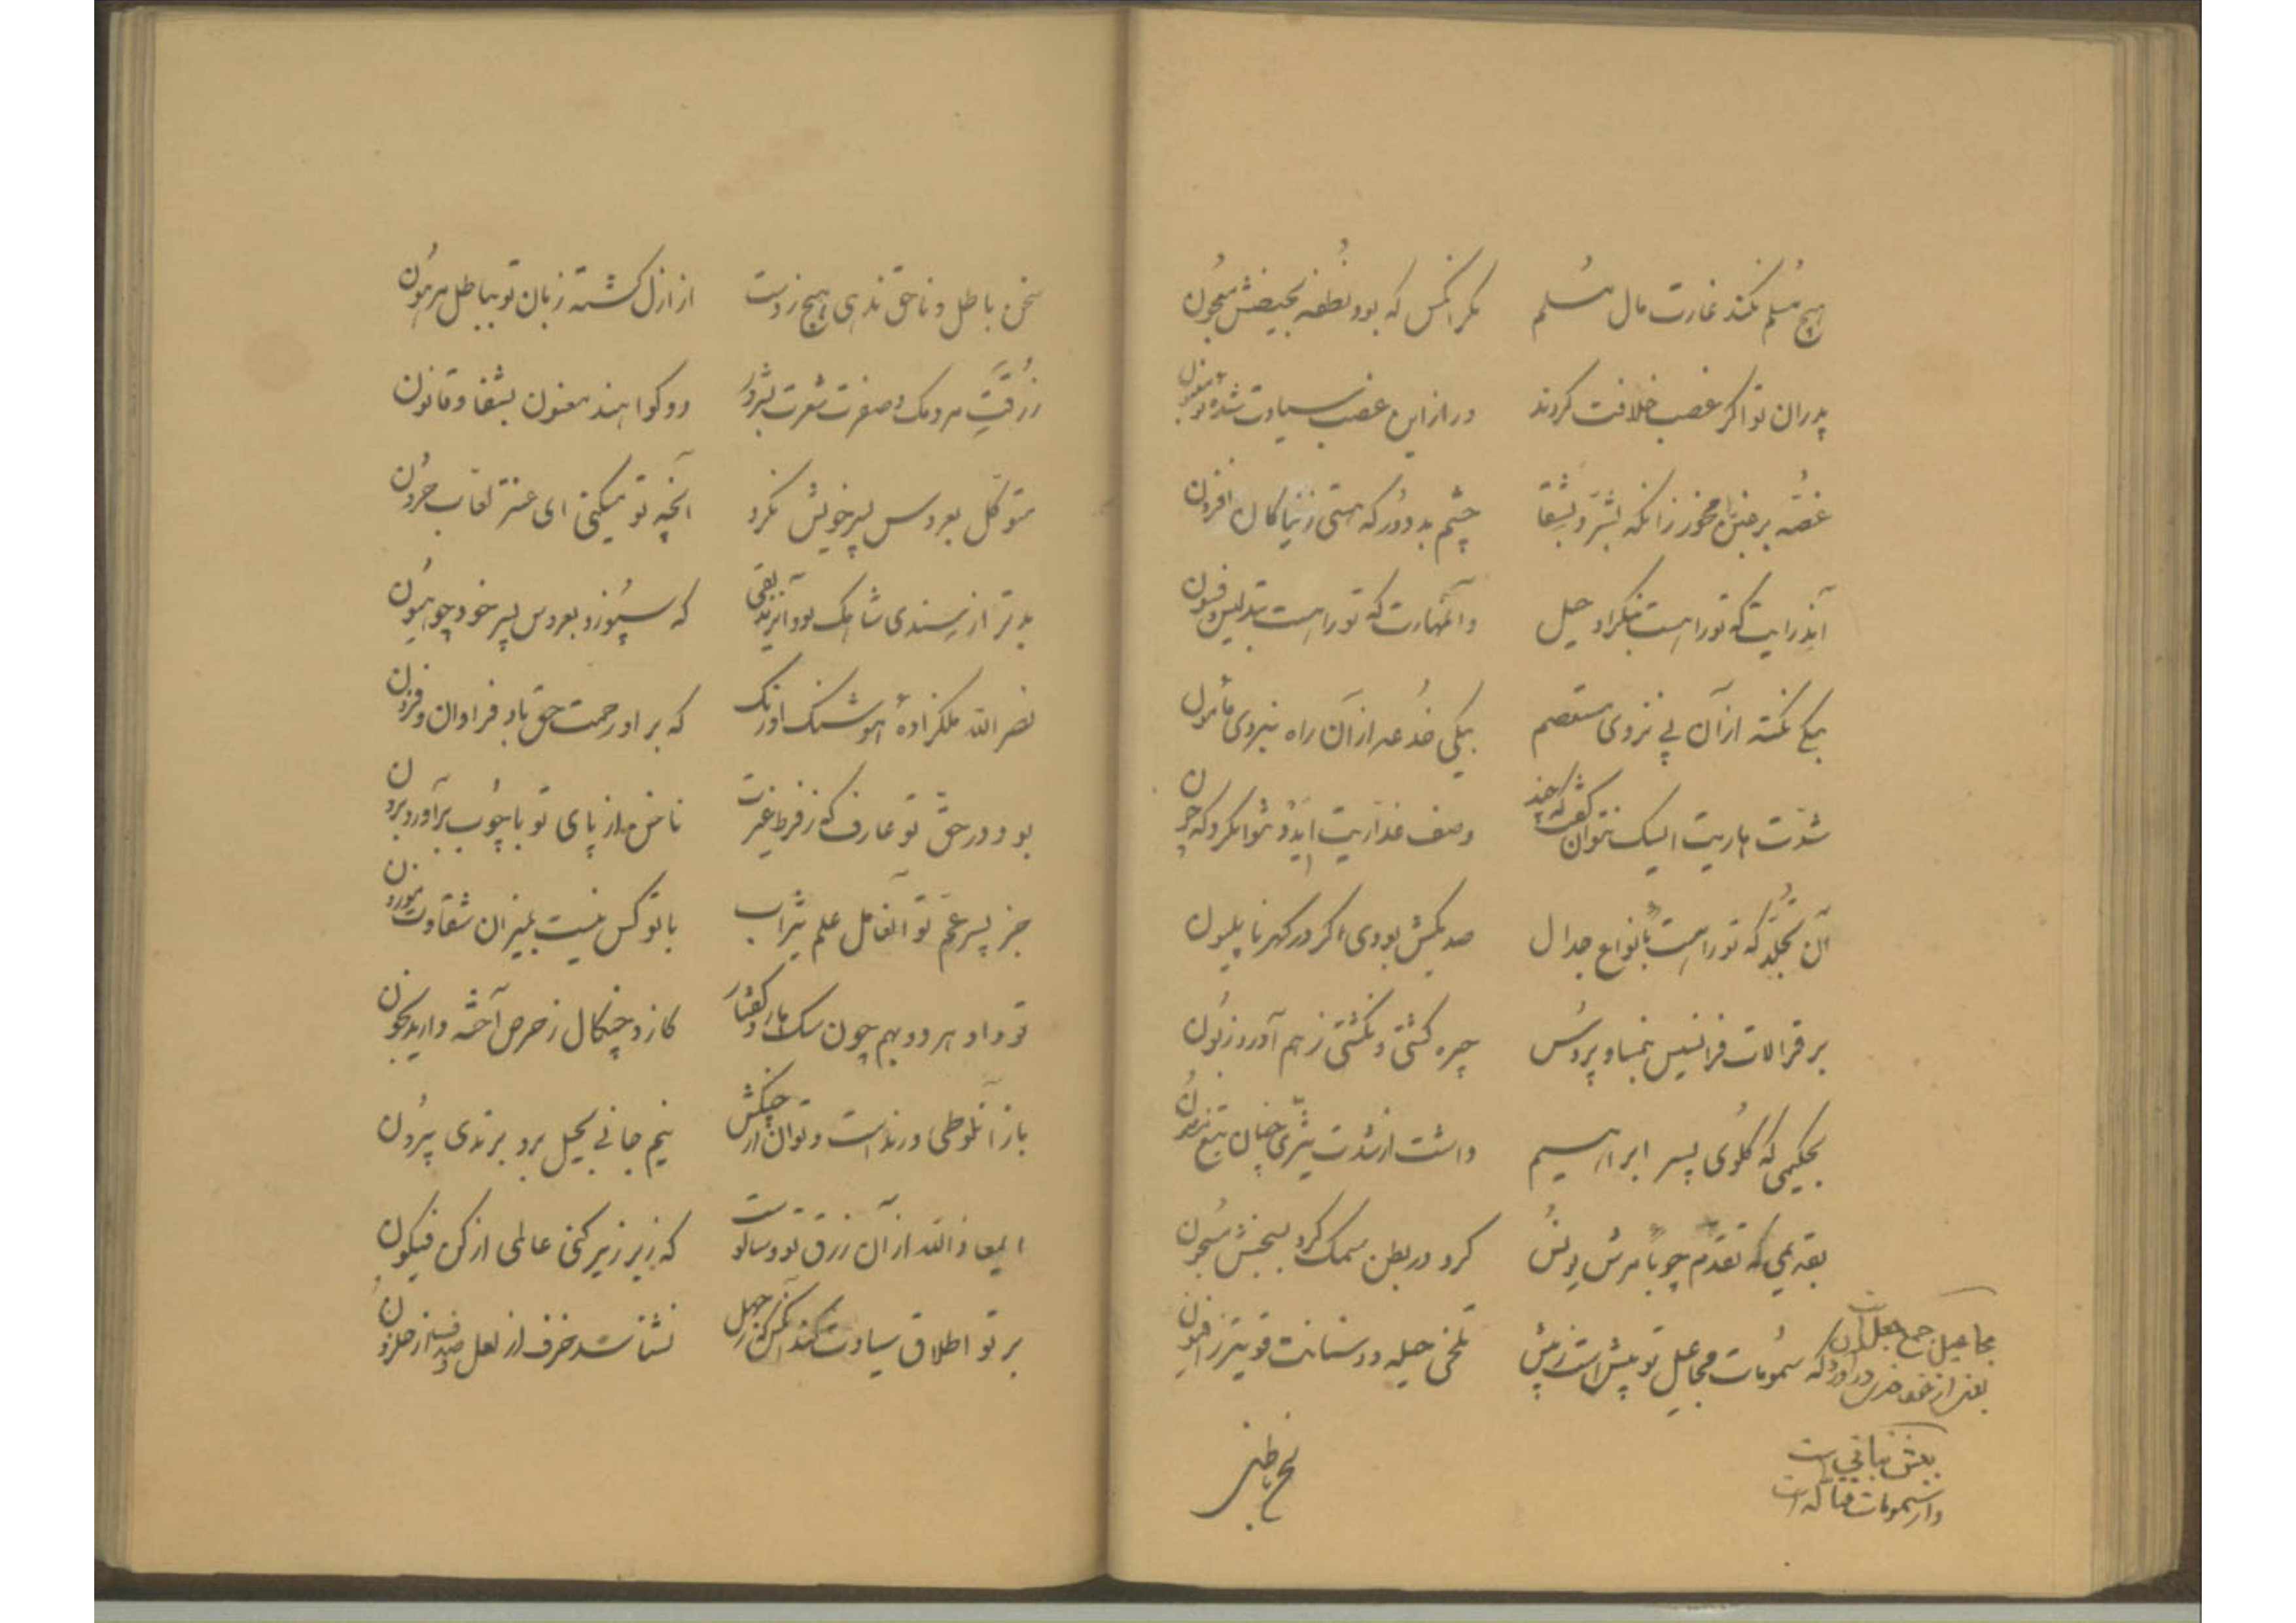 هیچ مُسلم نکند غارت مال مُسلم مگر آنکس که بود نُطفه بحیضش معجون
پدران تو اگر غصب خلافت کردند در ازاین غصب سیادت شدهٔ تو
غصّه بر مخور زانکه بشرّ و بشقا چشم بد دُور که هستی ز نیاکان افزون
آنذرایت که تو راهست بنکرا و حیل وآنمهارت که تو راهست بتدلیس و فسون
بیکی نکته از آن پی نزدی مستعصم بیکی خُدعه از آن راه نبردی مأمون
شدّت هاریت الیک نتوان گفت که چند وصف غدّاریت ایدُو نتوانکرد که چون
آن تجلّد که تو راهست بأنواع جدال صد یکش بودی اگر در گهر ناپلیون
بر قرالات فرانسیس و نمسا و پروُس چیره گشتی و نگشتی ز هم آورد زبُون
بحکیمی که گلوُی پسر ابراهیم داشت از شدّت تیزیّ چنان تیغ مصون
بقدیمی که تقدّم چو بأمرش یونُس کرد در بطن سمک کرد بسجنش مسجون
که سمُومات مجاعیل تو بیش است ز نیش تلخی حیله و دستانت قویتر ز افیون
مجاعیل جمع جعل است
بعضی نباتی است
واز سمومات قتاله است
سخن باطل و ناحق ندهی هیچ ز دست از ازل گشته زبان تو بباطل مرهون
زُرقتِ مردمک و صفرت شعرت بشرور دو گواهند همعنون بشقا و قانون
متوکّل بعروس پسر خویش نکرد آنچه تو میکنی ای عنتر لعّاب حرُون
بدتر از سندی شاهک بود آنزید که سپُوزد بعروس پسر خود چو هیُون
نصر الله ملکزادهٔ هوشنگ اورنگ که بر او رحمت حق باد فراوان و فزون
بود در حقّ تو عارف که ز فرط غیرت ناخن از پای تو با چوُب برآورد برون
جز پسر عمّ تو آنغافل علم تیراب با تو کس نیست بمیزان شقاوت موزون
تو و او هر دو بهم چون سگ و کفتار کاز و چنگال ز حرص آخته دارید بخون
باز آنلوطی درنداست و توان از چنگش نیم جانی بحیل برد بر ندی بیرُون
المعاذ الله از آن زرق تو و سالوست که ز بر زیر کنی عالمی از کن فیکون
بر تو اطلاق سیادت کند آنکس کز جهل نشناسد خزف از لعل و صدف از حلزون